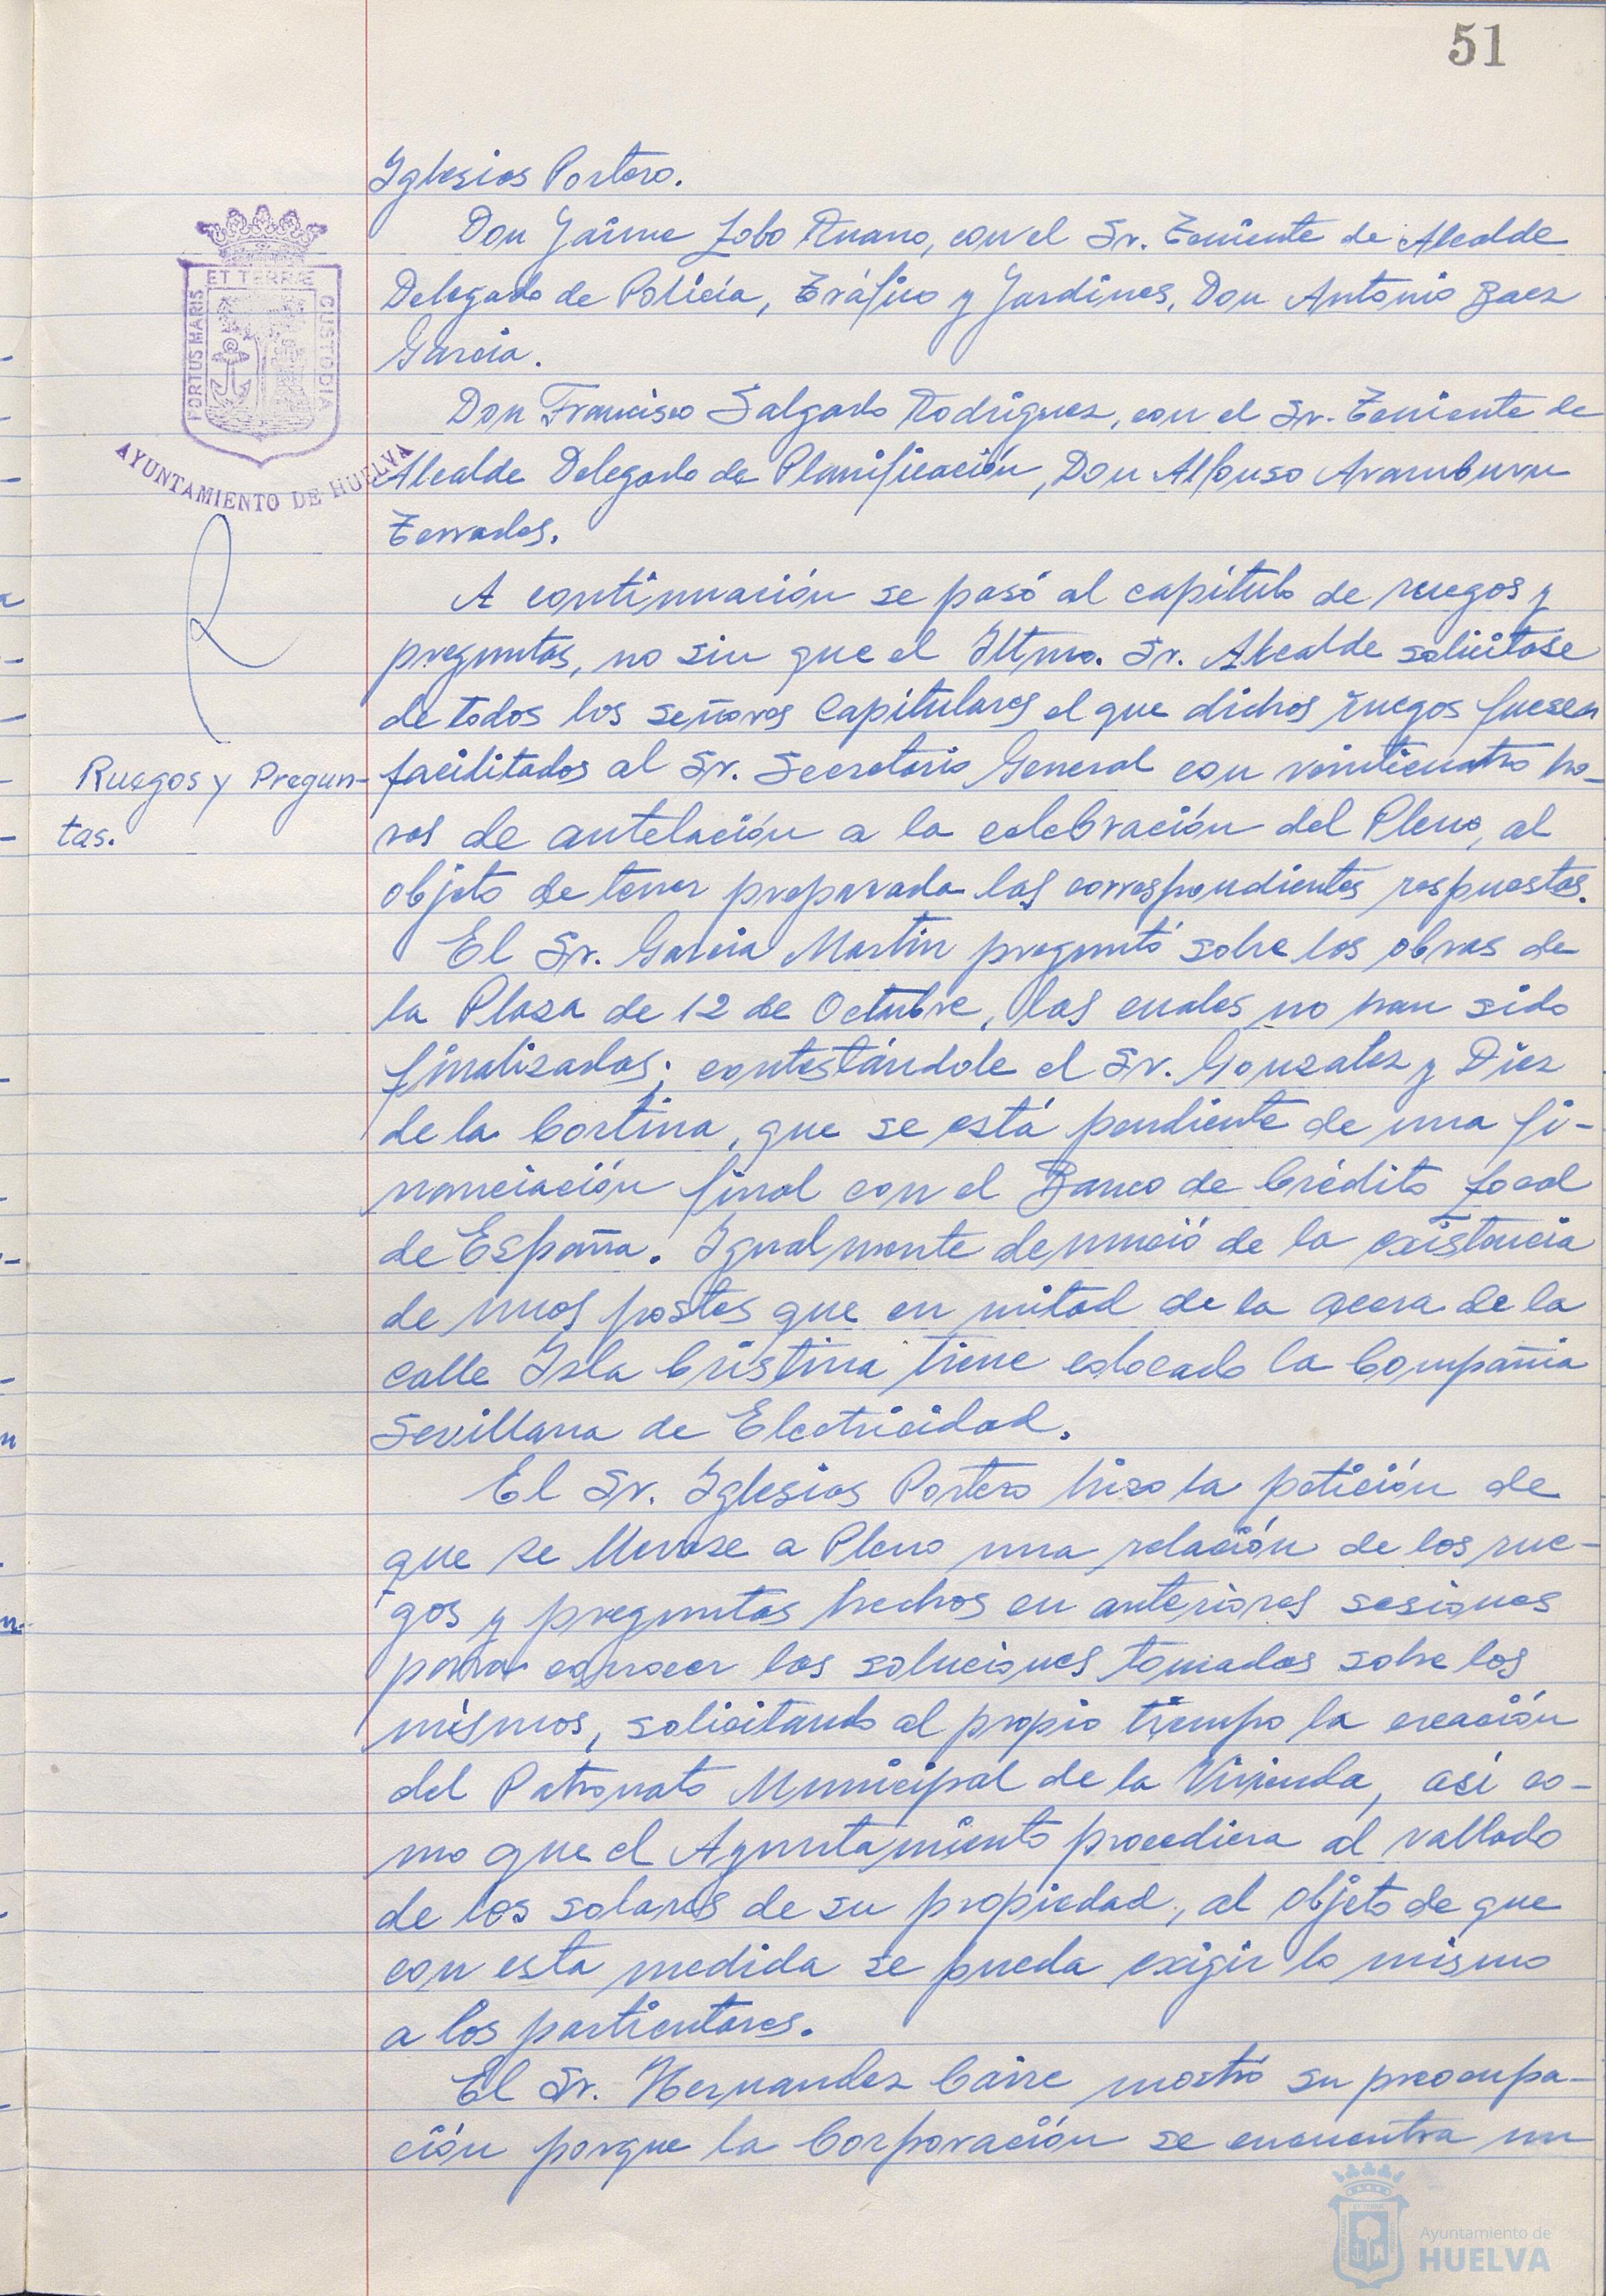 51
Iglesias Portero.
Don Jaime Lobo Ruano, con el Sr. Teniente de Alcalde
Delegado de Policía, Tráfico y Jardines, Don Antonio Baez
García.
Don Francisco Salgado Rodriguez, con el Sr. Teniente de
Alcalde Delegado de Planificación, Don Alfonso Aramburu
Terrades.
A continuación se pasó al capítulo de ruegos y
preguntas, no sin que el Iltmo. Sr. Alcalde solicitase
de todos los señores Capitulares el que dichos ruegos fuesen
facilitados al Sr. Secretario General con veinticuatro ho-
ras de antelación a la celebración del Pleno, al
objeto de tener preparada las correspondientes respuestas.
El Sr. García Martin preguntó sobre las obras de
la Plaza de 12 de Octubre, las cuales no han sido
finalizadas; contestándole el Sr. Gonzalez y Diez
de la Cortina, que se está pendiente de una fi-
nanciación final con el Banco de Crédito Local
de España. Igualmente denunció de la existencia
de unos postes que en mitad de la acera de la
calle Isla Cristina tiene colocado la Compañia
Sevillana de Electricidad.
El Sr. Iglesias Portero hizo la petición de
que se llevase a Pleno una relación de los rue-
gos y preguntas hechos en anteriores sesiones
para conocer las soluciones tomadas sobre los
mismos, solicitando al propio tiempo la creación
del Patronato Municipal de la Vivienda, así co-
mo que el Ayuntamiento procediera al vallado
de los solares de su propiedad, al objeto de que
con esta medida se pueda exigir lo mismo
a los particulares.
El Sr. Hernandez Caire mostró su preocupa-
ción porque la Corporación se encuentra un
Ruegos y Pregun-
tas.
PORTUS MARIS
ET TERRÆ
CUSTODIA
AYUNTAMIENTO DE HUELVA
Ayuntamiento de
HUELVA